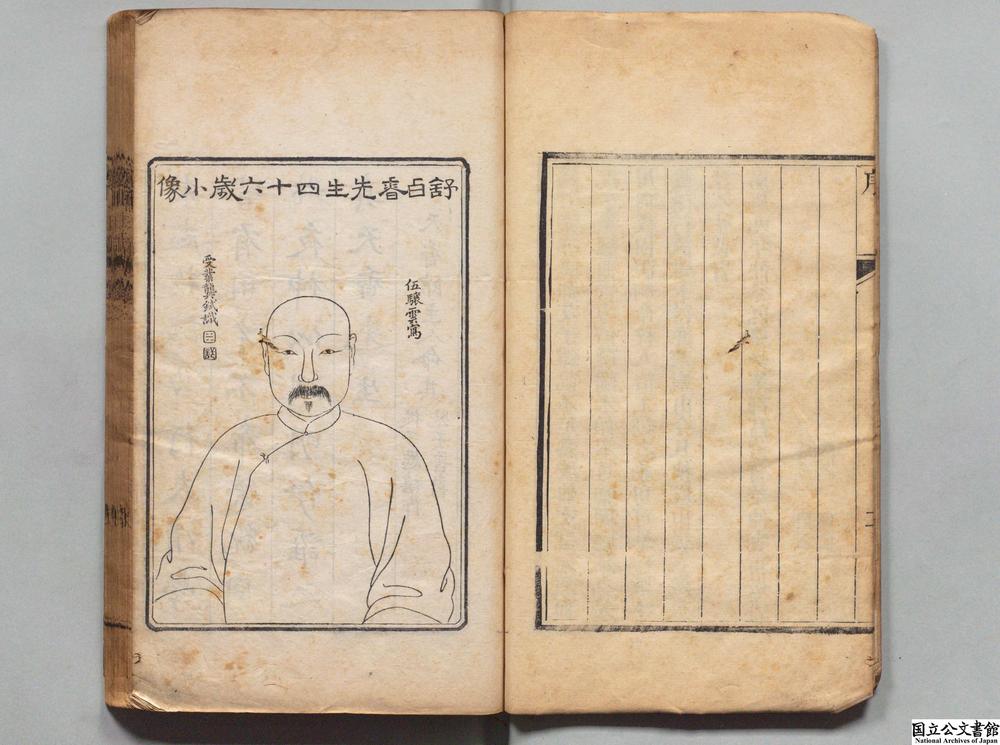 序
舒白香先生四十六歲小像
伍驥雲寫
受業龔鉽識
国立公文書館
National Archives of Japan